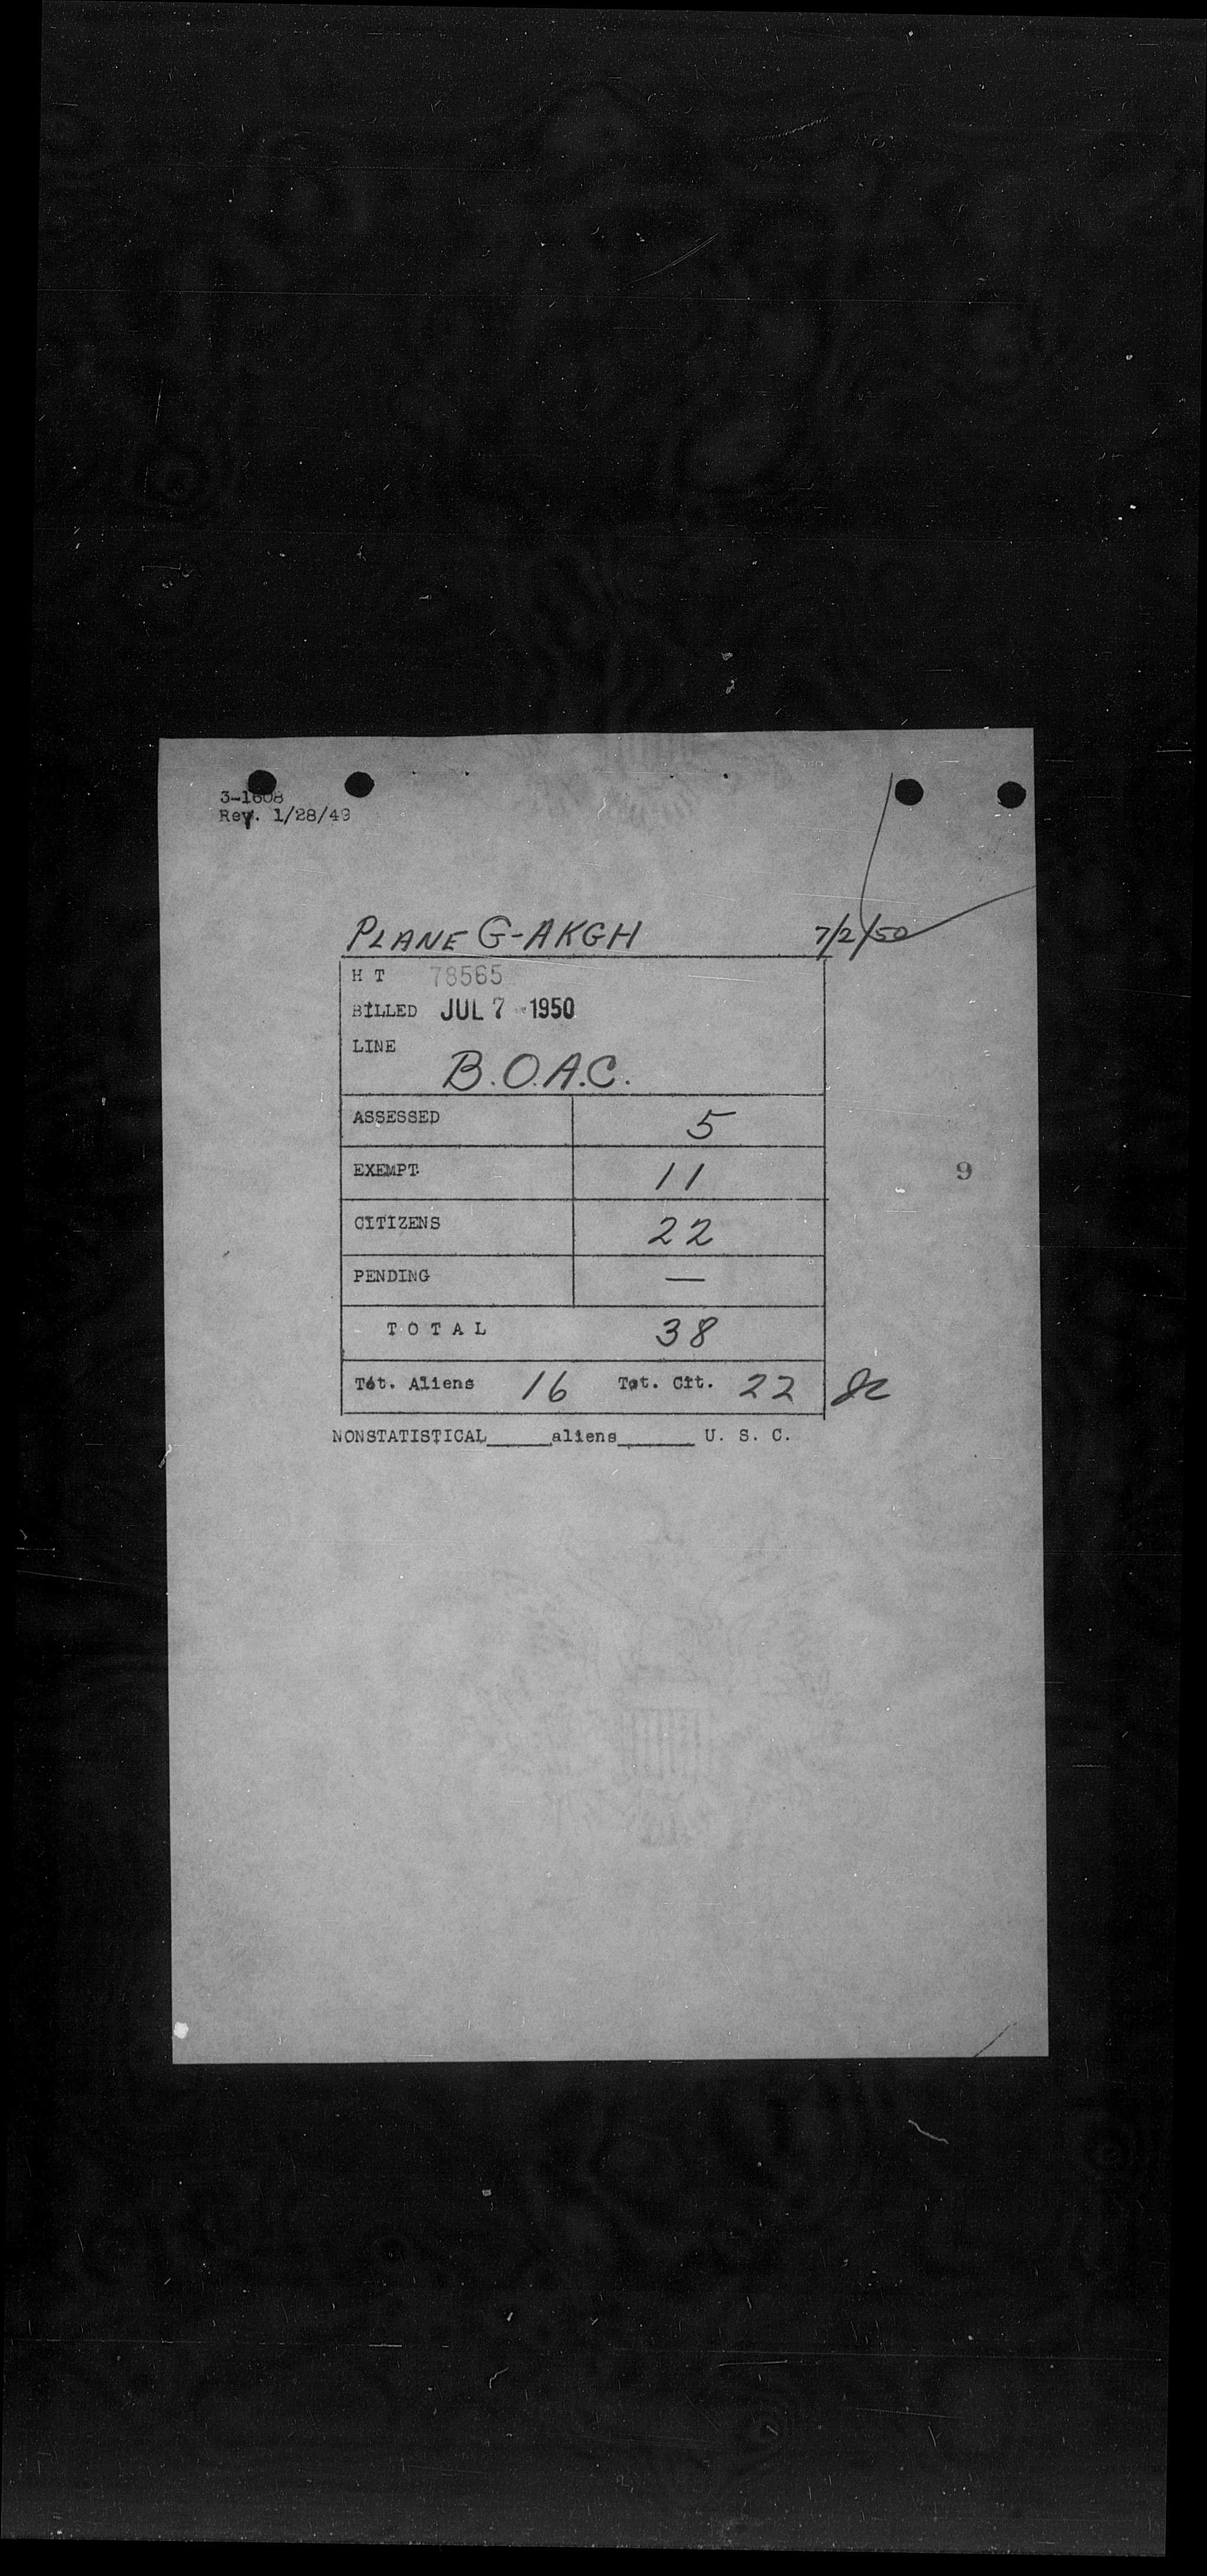 3-1608
Rev. 1/28/49
PLANE G-AKGH 7/2/50
H T 78565
BILLED JUL 7 1950
LINE
B.O.A.C.
ASSESSED 5
EXEMPT 11
9
CITIZENS 22
PENDING —
TOTAL 38
Tot. Aliens 16 Tot. Cit. 22
NONSTATISTICAL_____aliens______ U. S. C.